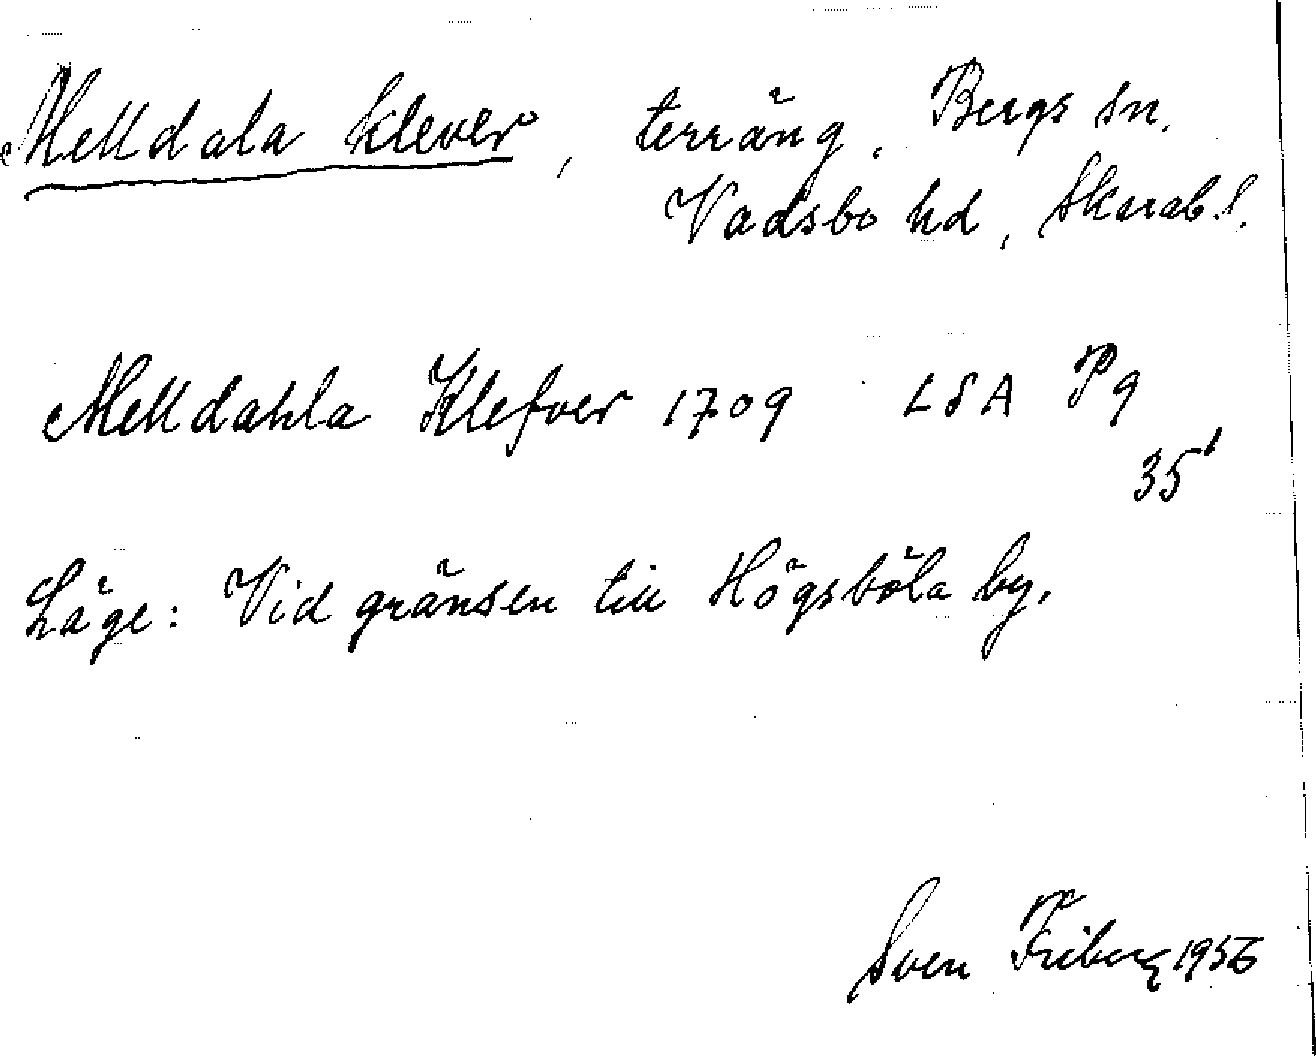 Melldala klever, terräng. Bergs sn.
Vadsbo hd, Skarab. l.
Melldahla Klefver 1709 LSA P9
35¹
Läge: Vid gränsen till Högsböla by.
Sven Friberg 1956